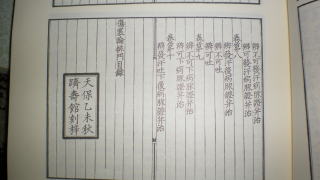 辨不可發汗病脉證并治
辨可發汗病脉證并治
卷第八
辨發汗後病脉證并治
辨不可吐
辨可吐
卷第九
辨不可下病脉證并治
辨可下病脉證并治
卷第十
辨發汗吐下後病脉證并治
傷寒論目錄
天保乙未秋
躋壽館刻梓